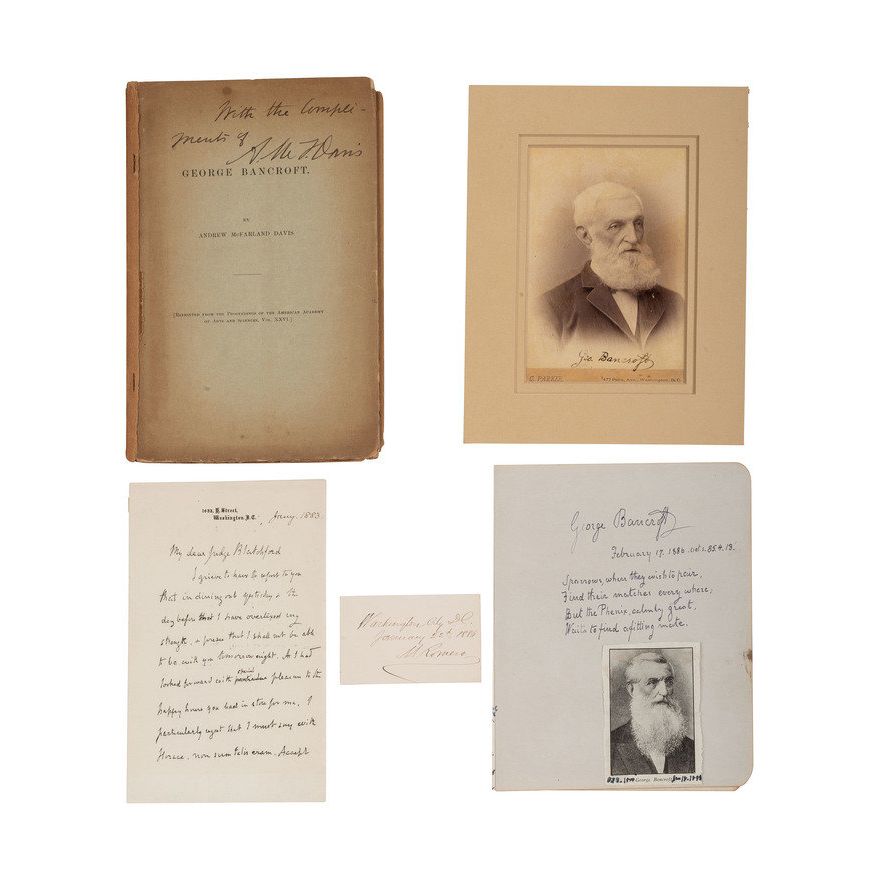 With the Compli-
ments of
A. McF. Davis
GEORGE BANCROFT.
BY
ANDREW McFARLAND DAVIS
[REPRINTED FROM THE PROCEEDINGS OF THE AMERICAN ACADEMY
OF ARTS AND SCIENCES, VOL. XXVI.]
Geo. Bancroft
C. PARKER
477 PENN. AVE. WASHINGTON, D.C.
Street,
Washington, D.C.
Jany. 1883
My dear Judge Blatchford
I grieve to have to report to you
that in dining out yesterday & the
day before that I have overtaxed my
strength, & foresee that I shall not be able
to be with you tomorrow night. As I had
looked forward with special pleasure to the
happy hours you had in store for me, I
particularly regret that I must say with
Horace, non sum qualis eram. Accept
Washington City D.C.
January 1886
M. Romero
George Bancroft
February 17. 1886.
Sparrows, when they wish to pair,
Find their matches every where;
But the Phenix, calmly great,
Waits to find a fitting mate.
George Bancroft